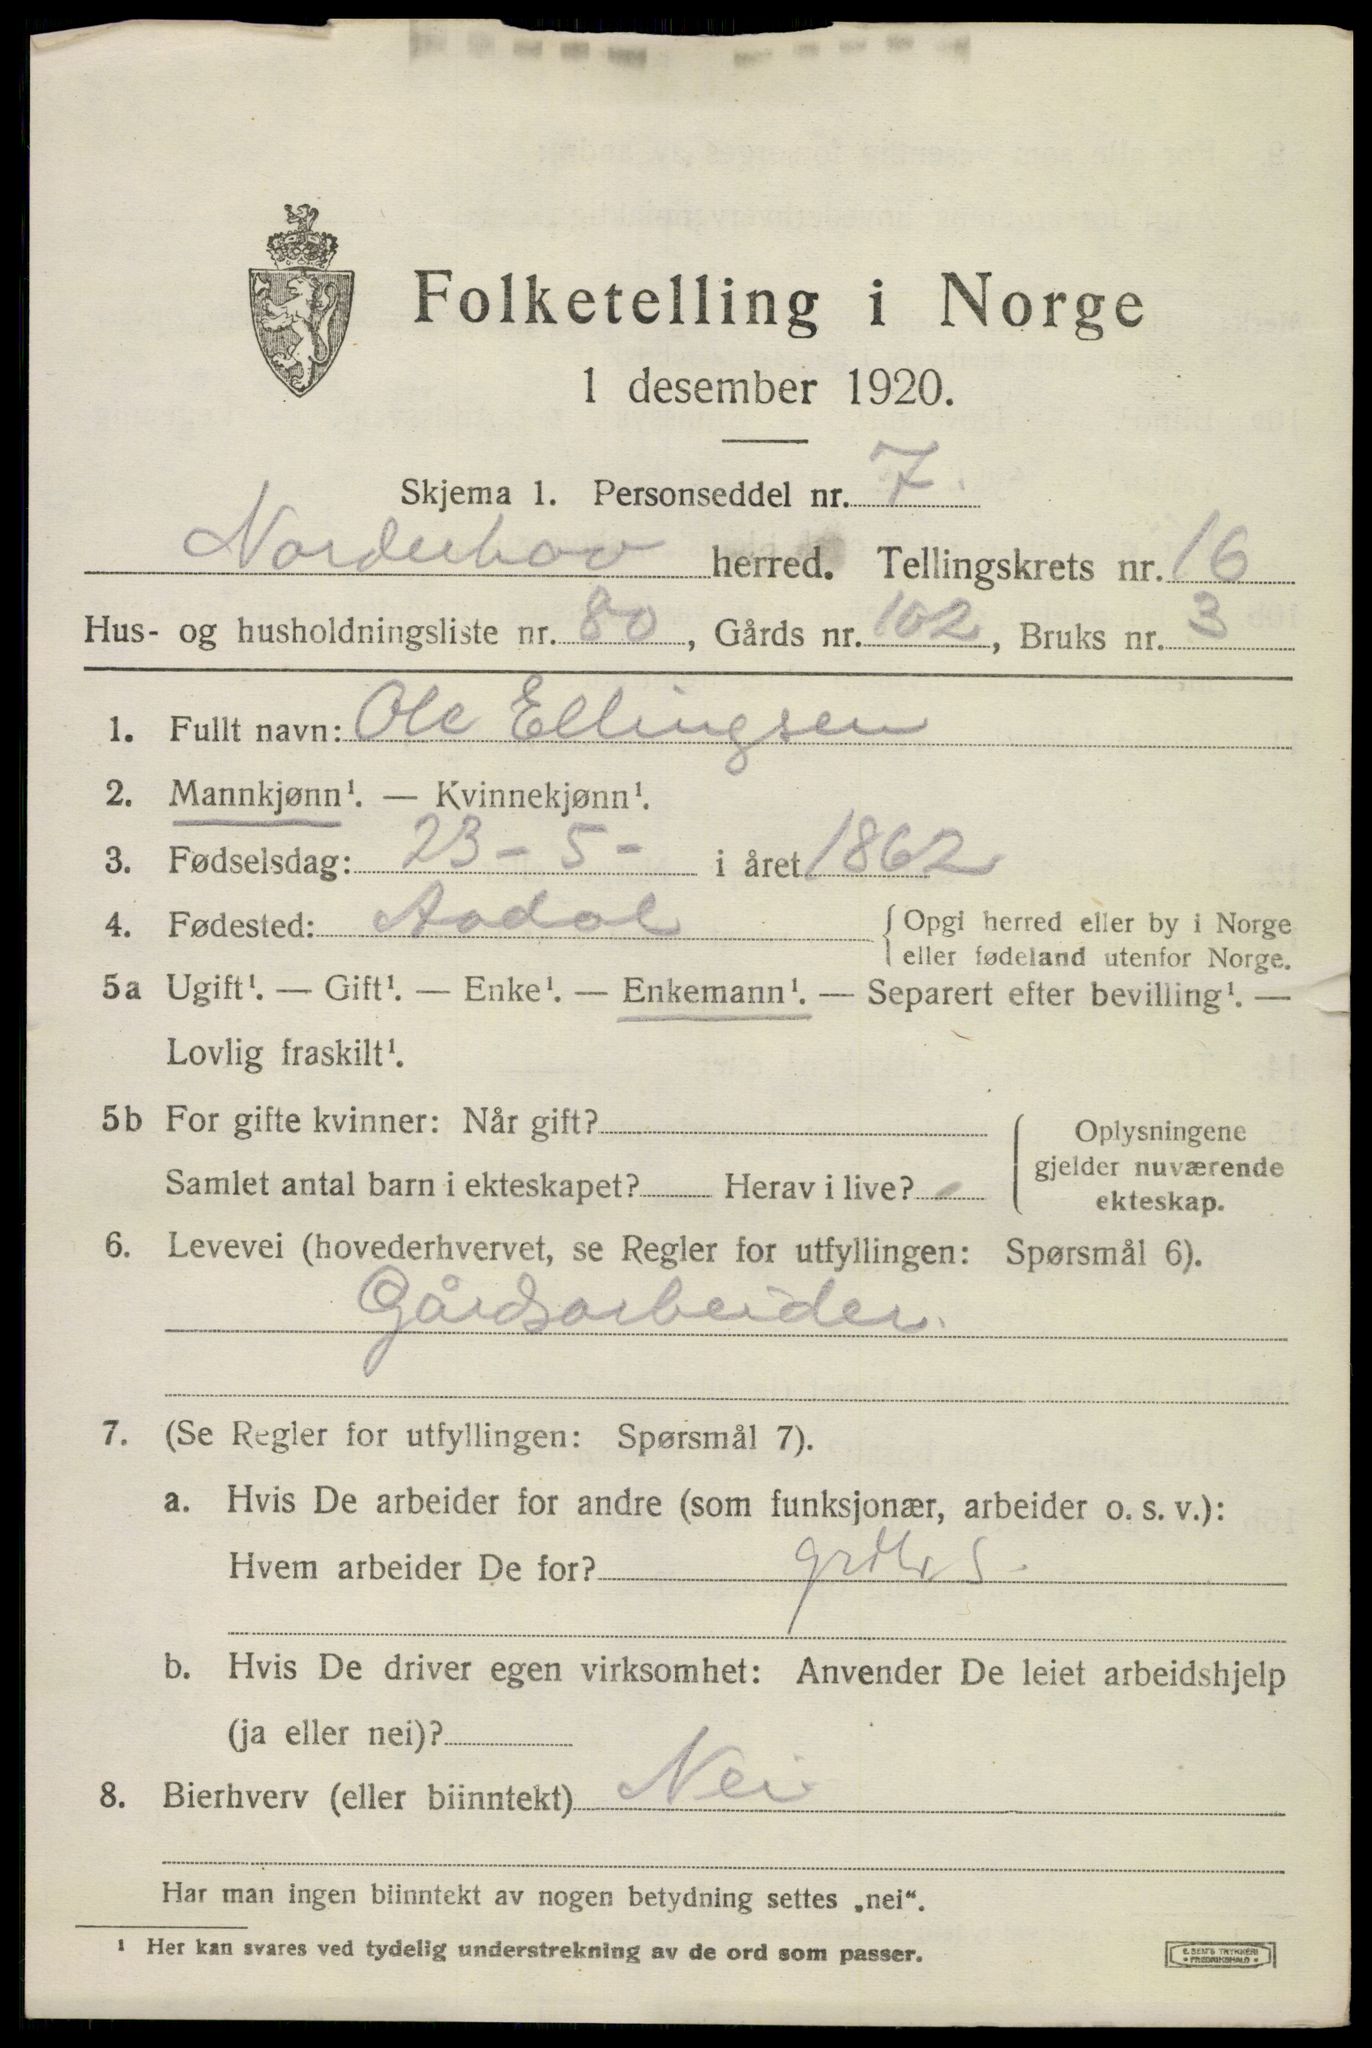 Folketelling i Norge
1 desember 1920.
Skjema 1. Personseddel nr. 7.
Norderhov herred. Tellingskrets nr. 16
Hus- og husholdningsliste nr. 80, Gårds nr. 102, Bruks nr. 3
1. Fullt navn: Ole Ellingsen
2. Mannkjønn¹. — Kvinnekjønn¹.
3. Fødselsdag: 23 - 5 - i året 1862
4. Fødested: Aadal {Opgi herred eller by i Norge
eller fødeland utenfor Norge.
5a Ugift¹. — Gift¹. — Enke¹. — Enkemann¹. — Separert efter bevilling¹. —
Lovlig fraskilt¹.
5b For gifte kvinner: Når gift?
Samlet antal barn i ekteskapet? Herav i live?
Oplysningene
gjelder nuværende
ekteskap.
6. Levevei (hovederhvervet, se Regler for utfyllingen: Spørsmål 6).
Gårdsarbeider.
7. (Se Regler for utfyllingen: Spørsmål 7).
a. Hvis De arbeider for andre (som funksjonær, arbeider o. s. v.):
Hvem arbeider De for?
b. Hvis De driver egen virksomhet: Anvender De leiet arbeidshjelp
(ja eller nei)?
8. Bierhverv (eller biinntekt) Nei
Har man ingen biinntekt av nogen betydning settes „nei“.
¹ Her kan svares ved tydelig understrekning av de ord som passer.
E. SEM'S TRYKKERI
• FREDRIKSHALD •